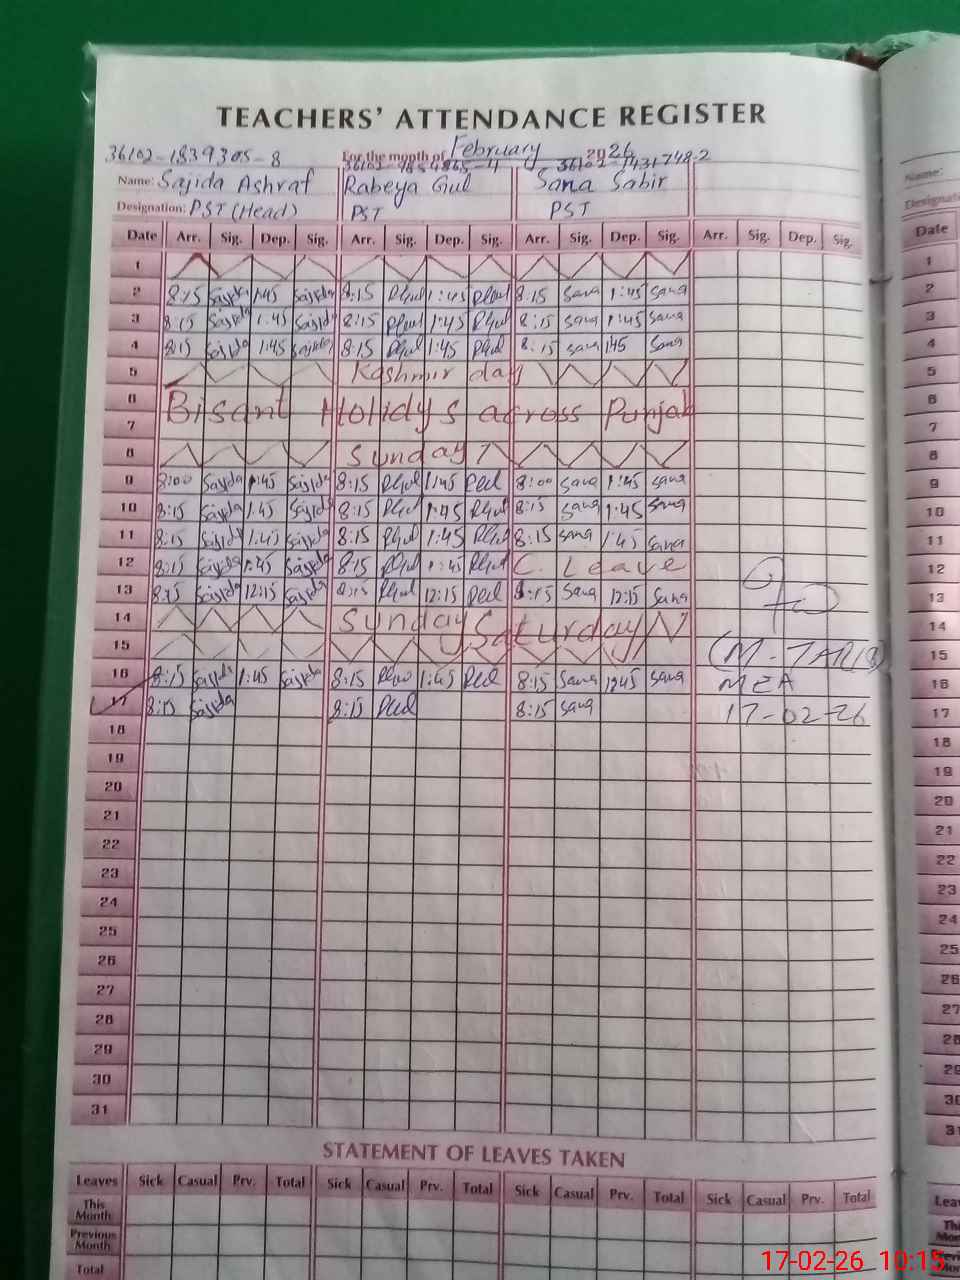 TEACHERS' ATTENDANCE REGISTER
36102-1839305-8 For the month of February 2026
36102-1431748-2
Name: Sajida Ashraf Rabeya Gul Sana Sabir
Designation: PST (Head) PST PST
Date Arr. Sig. Dep. Sig. Arr. Sig. Dep. Sig. Arr. Sig. Dep. Sig. Arr. Sig. Dep. Sig.
1
2 8:15 Sajida 1:45 Sajida 8:15 RGul 1:45 RGul 8:15 Sana 1:45 Sana
3 8:15 Sajida 1:45 Sajida 8:15 RGul 1:45 RGul 8:15 Sana 1:45 Sana
4 8:15 Sajida 1:45 Sajida 8:15 RGul 1:45 RGul 8:15 Sana 1:45 Sana
5 Kashmir day
6 Bisant Holidys across Punjab
7
8 Sunday
9 8:00 Sajida 1:45 Sajida 8:15 RGul 1:45 RGul 8:00 Sana 1:45 Sana
10 8:15 Sajida 1:45 Sajida 8:15 RGul 1:45 RGul 8:15 Sana 1:45 Sana
11 8:15 Sajida 1:45 Sajida 8:15 RGul 1:45 RGul 8:15 Sana 1:45 Sana
12 8:15 Sajida 1:45 Sajida 8:15 RGul 1:45 RGul C. Leave
13 8:15 Sajida 12:15 Sajida 8:15 RGul 12:15 RGul 8:15 Sana 12:15 Sana
14 Sunday Saturday
15 (M. TARIQ)
16 8:15 Sajida 1:45 Sajida 8:15 RGul 1:45 RGul 8:15 Sana 1245 Sana MEA
17 8:15 Sajida 8:15 RGul 8:15 Sana 17-02-26
18
19
20
21
22
23
24
25
26
27
28
29
30
31
STATEMENT OF LEAVES TAKEN
Leaves Sick Casual Prv. Total Sick Casual Prv. Total Sick Casual Prv. Total Sick Casual Prv. Total
This Month
Previous Month
Total
Name:
Date
1
2
3
4
5
6
7
8
9
10
11
12
13
14
15
16
17
18
19
20
21
22
23
24
25
28
30
17-02-26 10:15